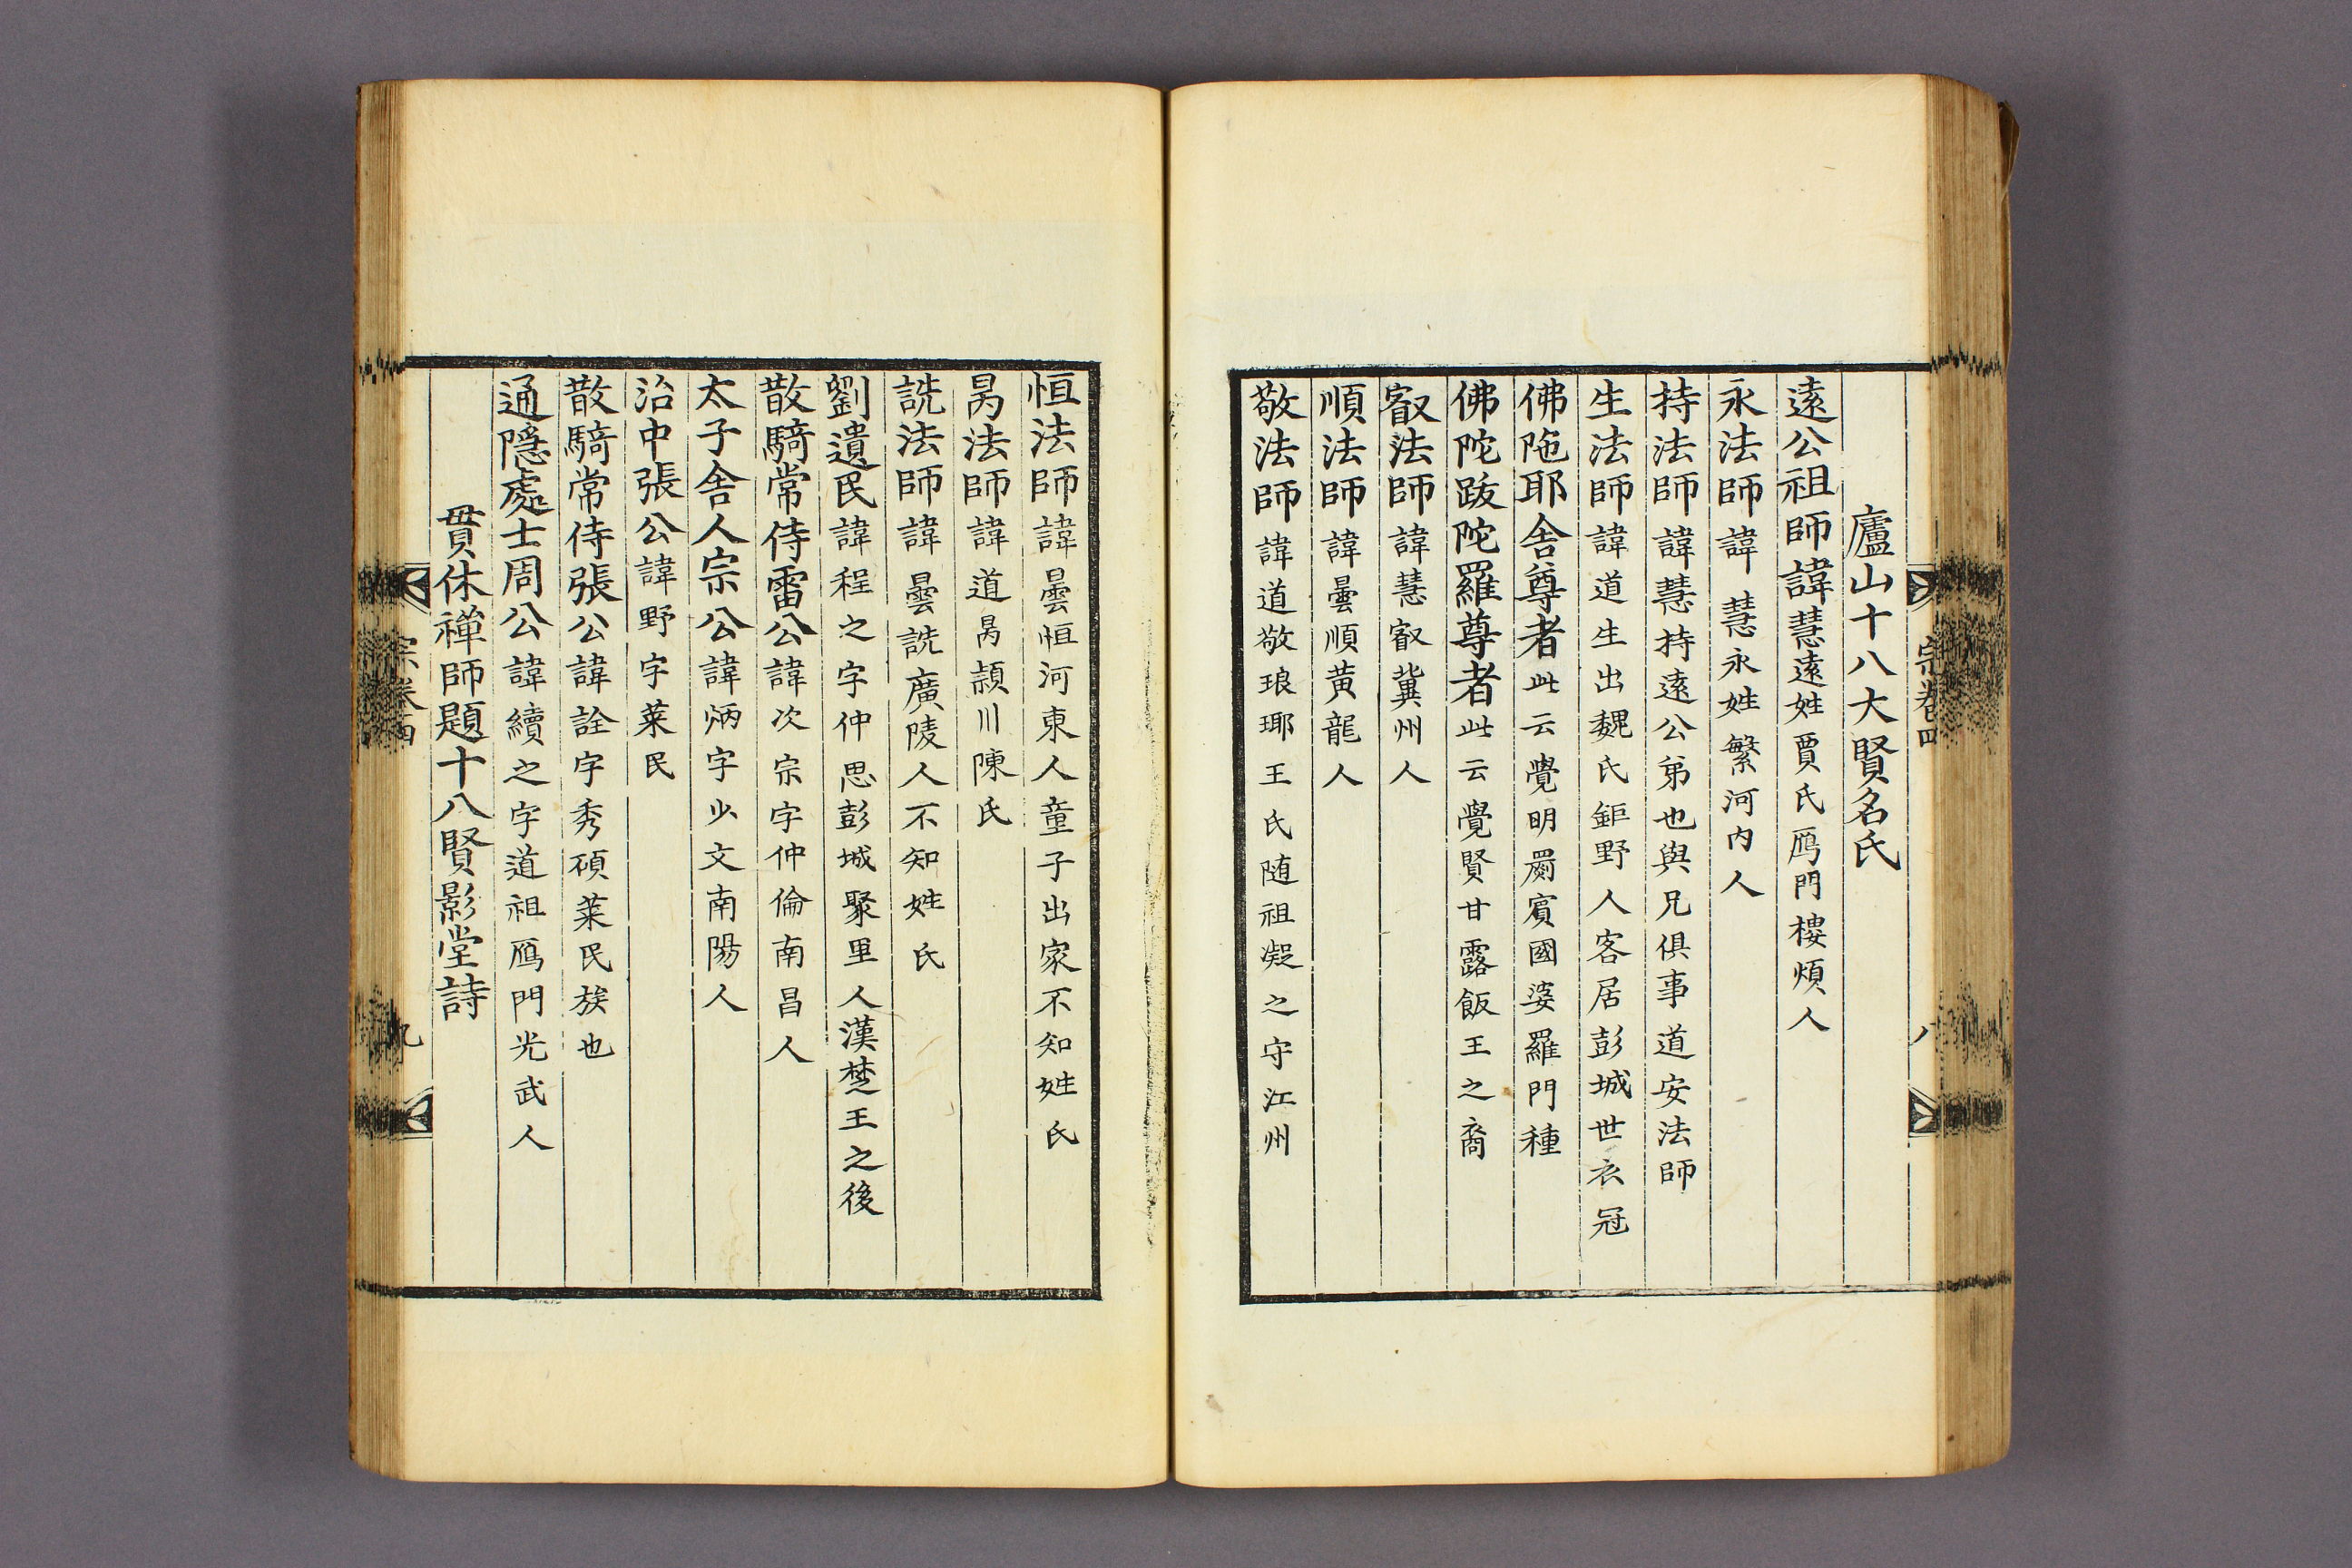 廬山十八大賢名氏
遠公祖師諱慧遠姓賈氏鴈門樓煩人
永法師諱慧永姓繁河内人
持法師諱慧持遠公弟也與兄俱事道安法師
生法師諱道生出魏氏鉅野人客居彭城世衣冠
佛陁耶舍尊者此云覺明罽賓國婆羅門種
佛陀跋陀羅尊者此云覺賢甘露飯王之裔
叡法師諱慧叡冀州人
順法師諱曇順黃龍人
敬法師諱道敬琅琊王氏随祖凝之守江州
宗卷四
八
恒法師諱曇恒河東人童子出家不知姓氏
昺法師諱道昺頴川陳氏
詵法師諱曇詵廣陵人不知姓氏
劉遺民諱程之字仲思彭城聚里人漢楚王之後
散騎常侍雷公諱次宗字仲倫南昌人
太子舍人宗公諱炳字少文南陽人
治中張公諱野字萊民
散騎常侍張公諱詮字秀碩萊民族也
通隱處士周公諱續之字道祖鴈門光武人
貫休禪師題十八賢影堂詩
宗卷四
九